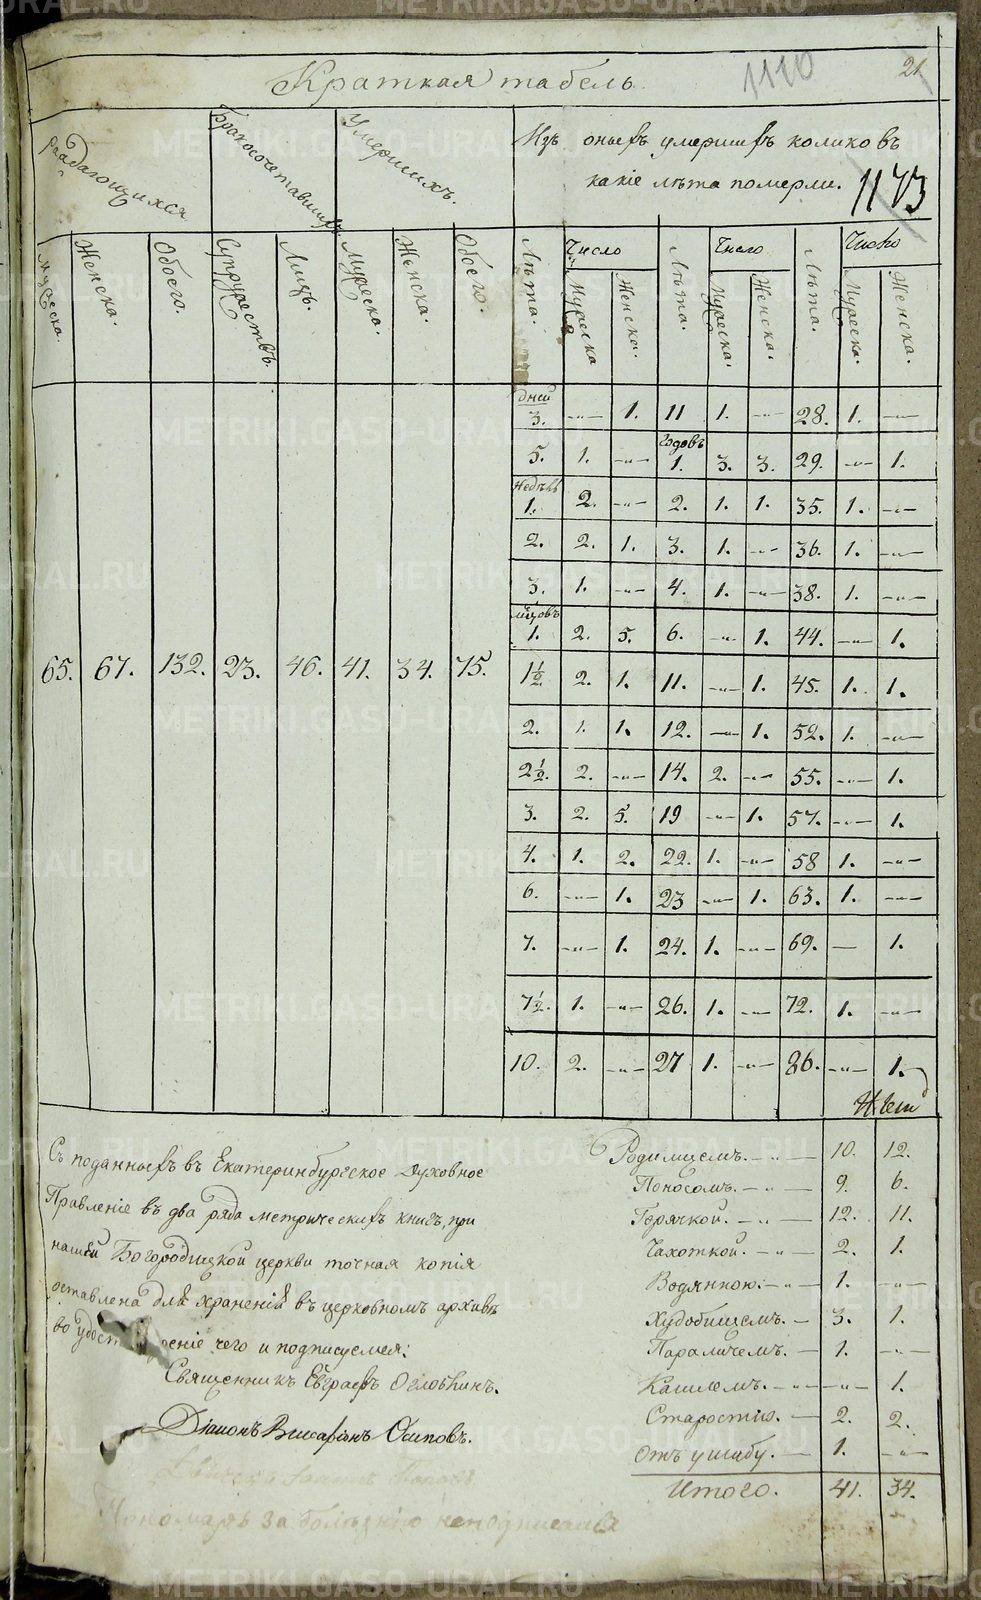 Краткая табель.
1110
21
Раждающихся
Бракосочетавшихся
Умершихъ.
Изъ оныхъ умершихъ колико въ
какіе лѣта померли.
1173
Мужеска.
Женска.
Обоего.
Супружествъ.
Лицъ.
Мужеска.
Женска.
Обоего.
Лѣта.
Число
Лѣта.
Число
Лѣта.
Число
Мужеска
Женска.
Мужеска.
Женска.
Мужеска.
Женска.
65. 67. 132. 23. 46. 41. 34. 75.
дней
3. -"- 1. 11 1. -"- 28. 1. -"-
годовъ
5. 1. -"- 1. 3. 3. 29. -"- 1.
недѣль
1. 2. -"- 2. 1. 1. 35. 1. -"-
2. 2. 1. 3. 1. -"- 36. 1. -"-
3. 1. -"- 4. 1. -"- 38. 1. -"-
мѣцовъ
1. 2. 5. 6. -"- 1. 44. -"- 1.
1½ 2. 1. 11. -"- 1. 45. 1. 1.
2. 1. 1. 12. -"- 1. 52. 1. -"-
2½. 2. -"- 14. 2. -"- 55. -"- 1.
3. 2. 5. 19 -"- 1. 57. -"- 1.
4. 1. 2. 22. 1. -"- 58 1. -"-
6. -"- 1. 23 -"- 1. 63. 1. -"-
7. -"- 1. 24. 1. -"- 69. — 1.
7½. 1. -"- 26. 1. -"- 72. 1. -"-
10. 2. -"- 27 1. -"- 86. -"- 1.
Съ поданныхъ въ Екатеринбургское Духовное
Правленіе въ два ряда метрическихъ книгъ, при
нашей Богородицкой церкви точная копія
оставлена для храненія въ церковномъ архивѣ
во удост реніе чего и подписуемся:
Священникъ Евграфъ Оглоблинъ.
Діаконъ Висаріонъ Осиповъ.
Пономарь за болѣзнію неподписался
Родимцемъ. -"- 10. 12.
Поносомъ. -"- 9. 6.
Горячкой. -"- 12. 11.
Чахоткой. -"- 2. 1.
Водянкою. -"- 1. -"-
Худобищемъ. — 3. 1.
Параличемъ. — 1. -"-
Кашлемъ. -"- -"- 1.
Старостію. — 2. 2.
Отъ ушибу. — 1. -"-
Итого. 41. 34.
METRIKI.GASO-URAL.RU